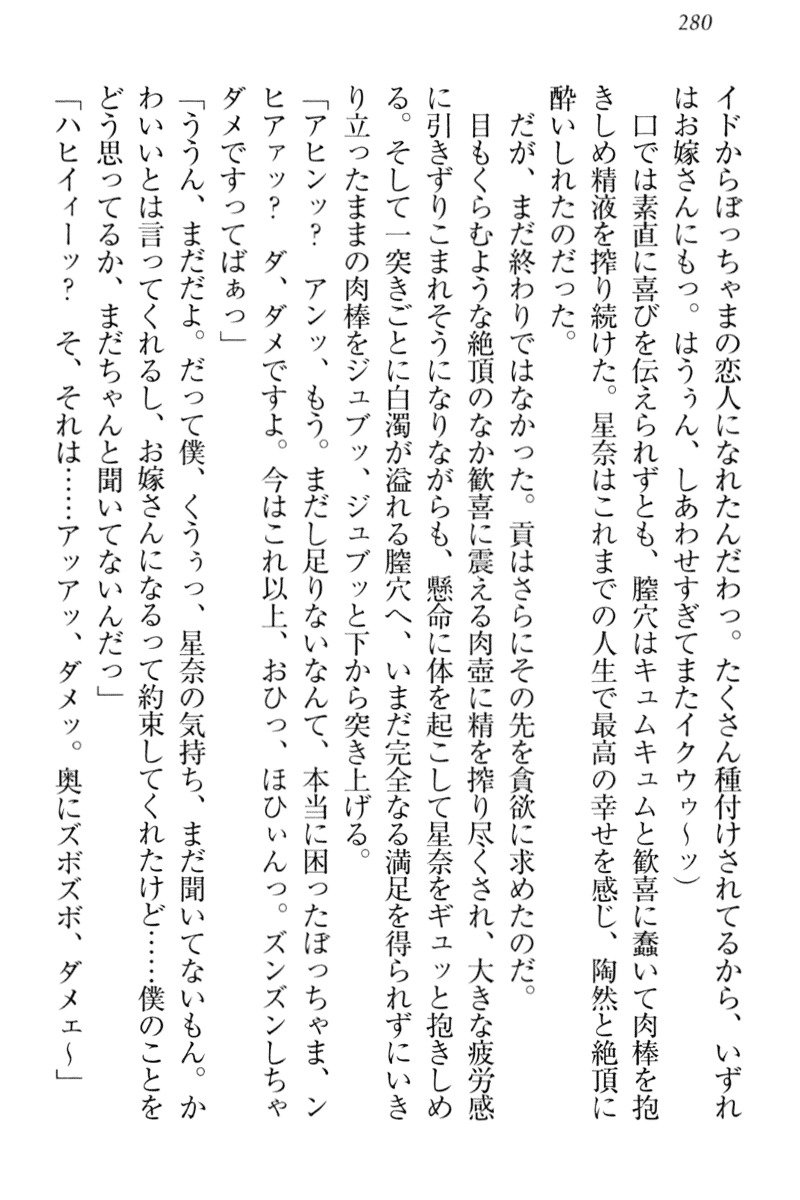 280
イドからぼっちゃまの恋人になれたんだわっ。たくさん種付けされてるから、いずれ
はお嫁さんにもっ。はうぅん、しあわせすぎてまたイクウゥ～ッ）
口では素直に喜びを伝えられずとも、膣穴はキュムキュムと歓喜に蠢いて肉棒を抱
きしめ精液を搾り続けた。星奈はこれまでの人生で最高の幸せを感じ、陶然と絶頂に
酔いしれたのだった。
だが、まだ終わりではなかった。貢はさらにその先を貪欲に求めたのだ。
目もくらむような絶頂のなか歓喜に震える肉壺に精を搾り尽くされ、大きな疲労感
に引きずりこまれそうになりながらも、懸命に体を起こして星奈をギュッと抱きしめ
る。そして一突きごとに白濁が溢れる膣穴へ、いまだ完全なる満足を得られずにいき
り立ったままの肉棒をジュブッ、ジュブッと下から突き上げる。
「アヒンッ？　アンッ、もう。まだし足りないなんて、本当に困ったぼっちゃま、ン
ヒアァッ？　ダ、ダメですよ。今はこれ以上、おひっ、ほひぃんっ。ズンズンしちゃ
ダメですってばぁっ」
「ううん、まだだよ。だって僕、くうぅっ、星奈の気持ち、まだ聞いてないもん。か
わいいとは言ってくれるし、お嫁さんになるって約束してくれたけど……僕のことを
どう思ってるか、まだちゃんと聞いてないんだっ」
「ハヒイィーッ？　そ、それは……アッアッ、ダメッ。奥にズボズボ、ダメェ～」